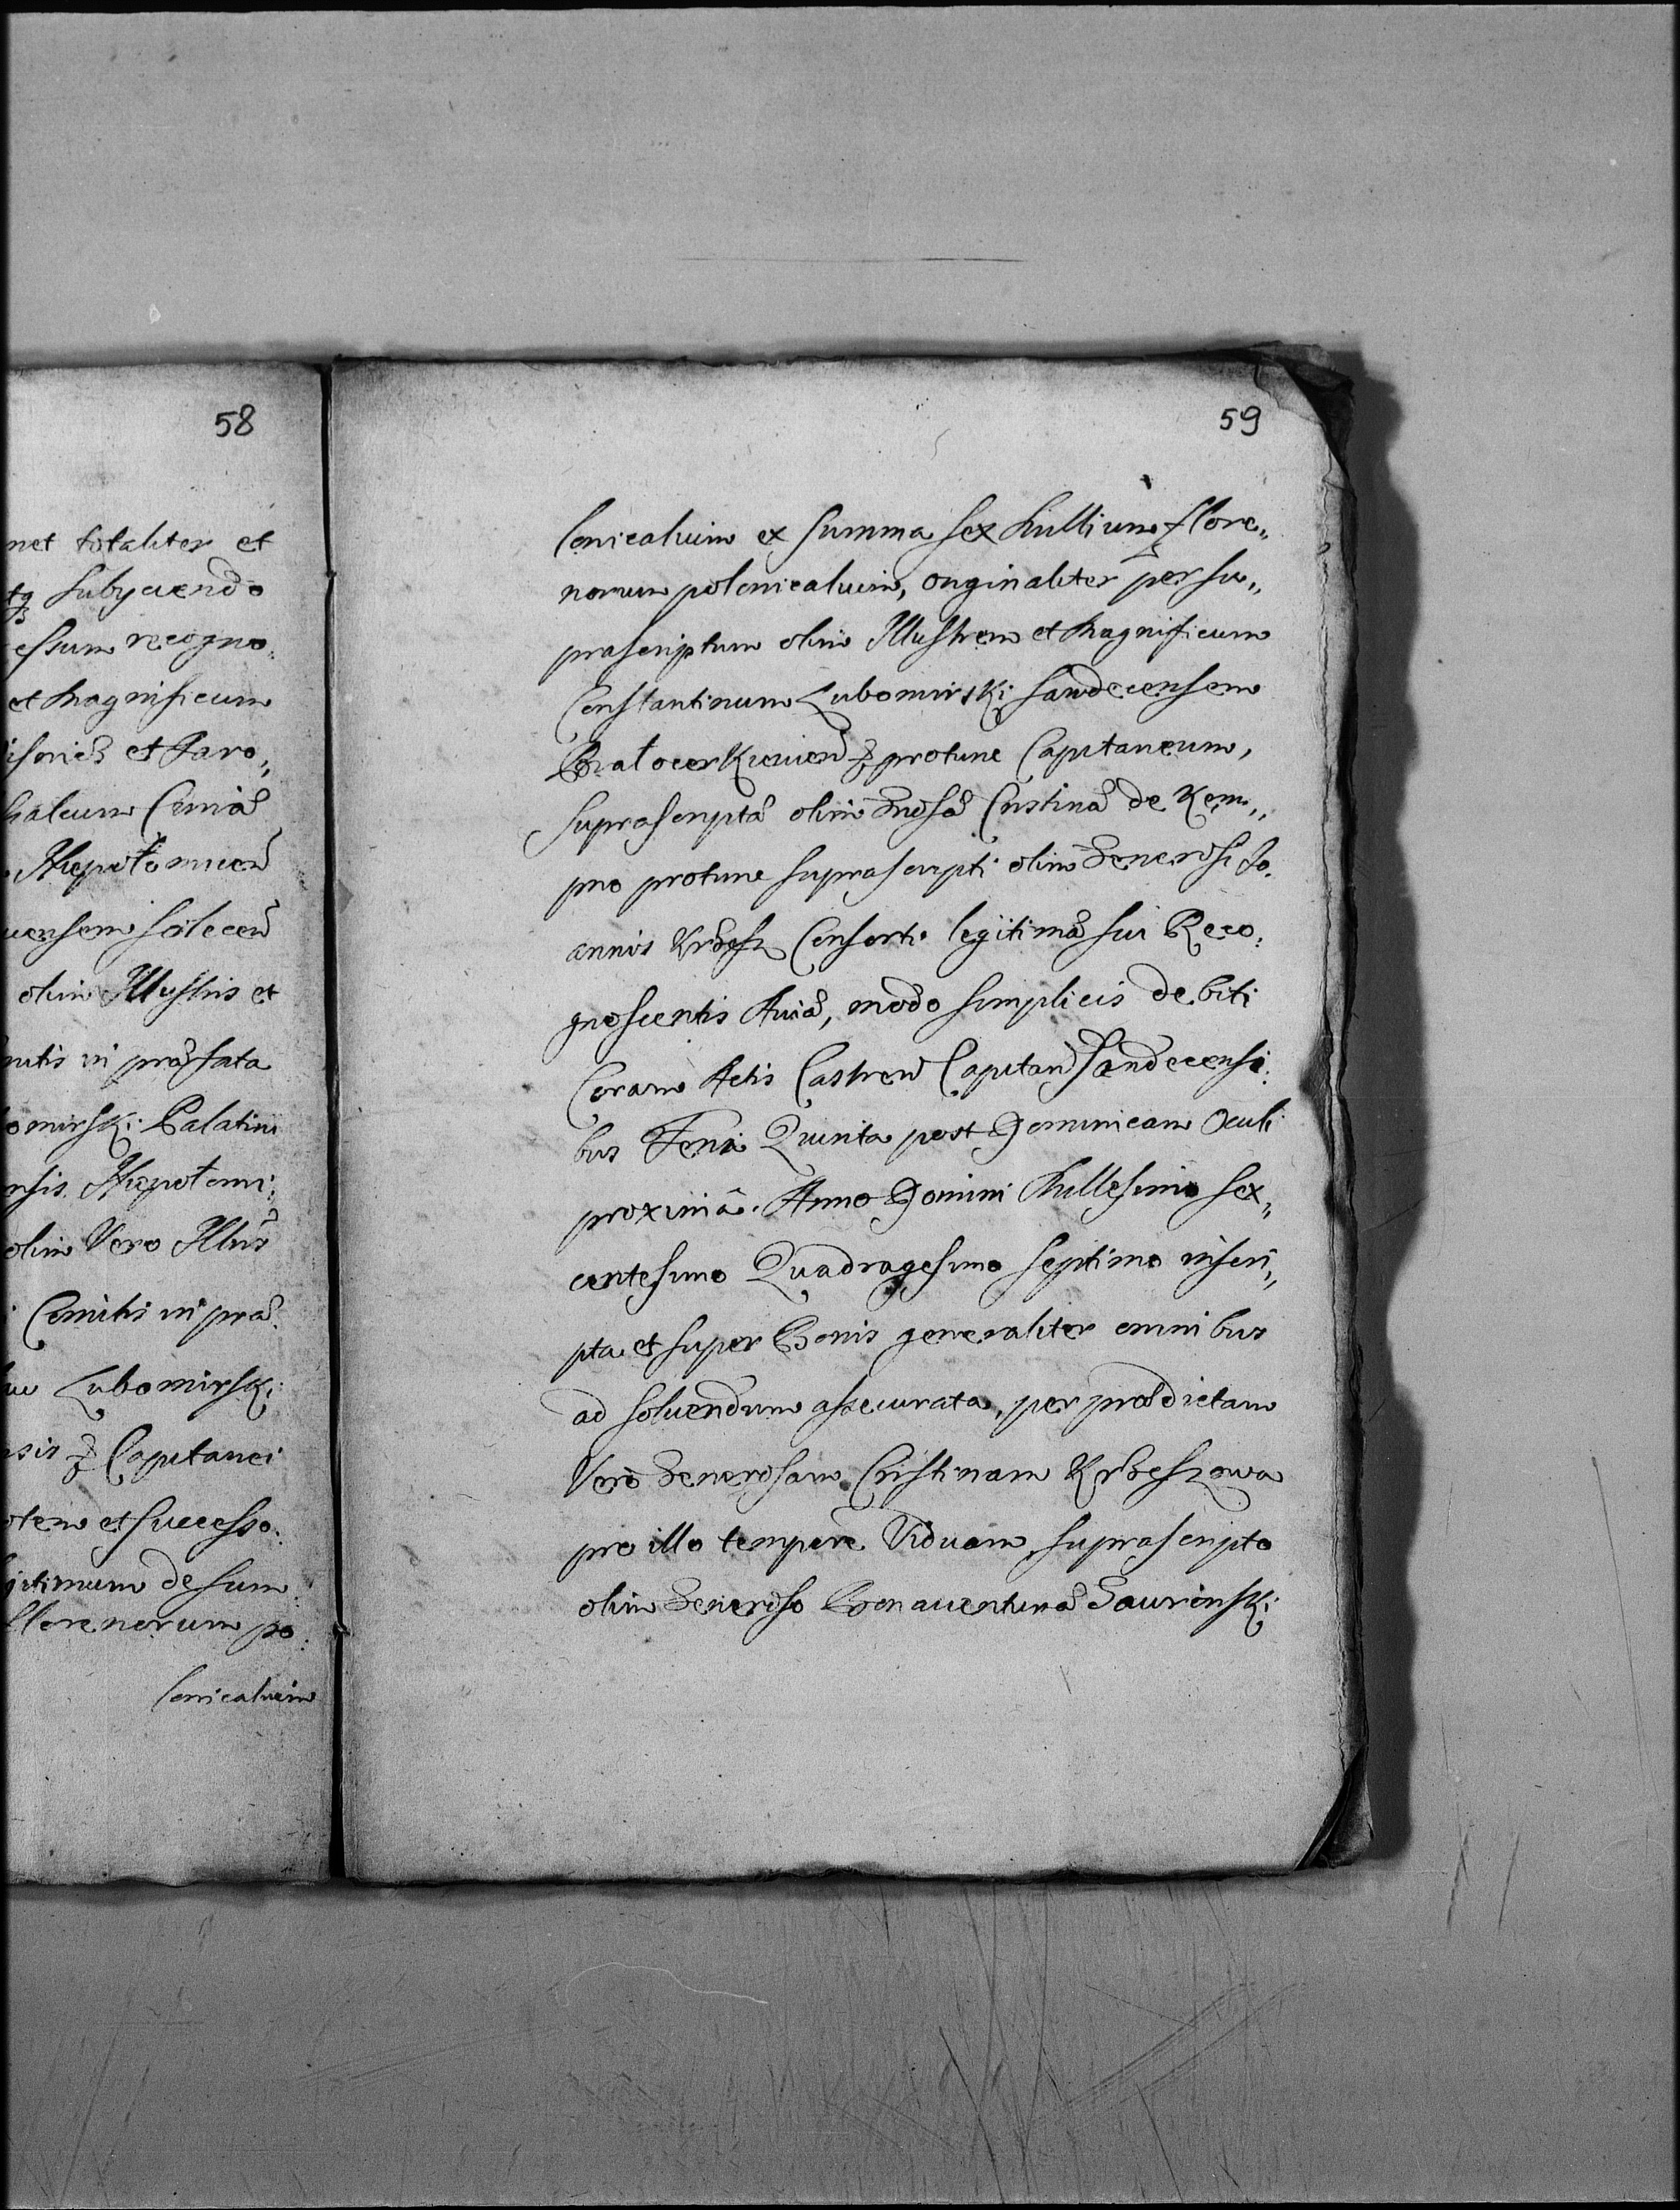 58
net totaliter et
tq subyciendo
essum recogno:
et Magnificum
isnici et Jaro,,
halcum Comitẽ
Niepołomicen̄
uensem Solecen̄
olim Illustris et
mitis in præfata
omirski Palatini
nsis Niepołomi:
olim Vero Illris
Comitis in præ:
Lubomirski
nsis & Capitanei
otem et Successo:
gitimum de sum
florenorum po:
lonicalium
59
lonicalium ex Summa sex Millium flore,,
norum polonicalium, originaliter per su,,
prascriptum olim Illustrem et Magnificum
Constantinum Lubomirski Sandecensem
Białocerkievien̄ & protunc Capitaneum,
suprascriptæ olim Gñosæ Cristinæ de Kem,,
pno protunc suprascripti olim Generosi Jo:
annis Krdesz Consorti legitimæ sui Reco:
gnoscentis Auiæ, modo simplicis debiti
Coram Actis Castren̄ Capitan̄ Sandecensi:
bus Feria Quinta post Dominicam Oculi
proximâ. Anno Domini Millesimo sex,,
centesimo Quadragesimo Septimo inscri,,
pta et super Bonis generaliter omnibus
ad soluendum assecurata, per prædictam
Vero Generosam Cristinam Krdeszowa
pro illo tempore Viduam, suprascripto
olim Generoso Bonauenturæ Gauronski